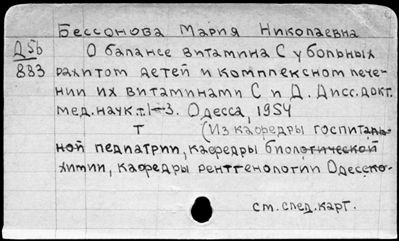 Бессонова Мария Николаевна
Д 5б
883
О балансе витамина С у больных
рахитом детей и комплексном лече-
нии их витаминами С и Д. Дисс. докт.
мед. наук. т. 1-3. Одесса, 1954
Т (Из кафедры госпиталь-
ной педиатрии, кафедры биологической
химии, кафедры рентгенологии Одесско-
см. след. карт.